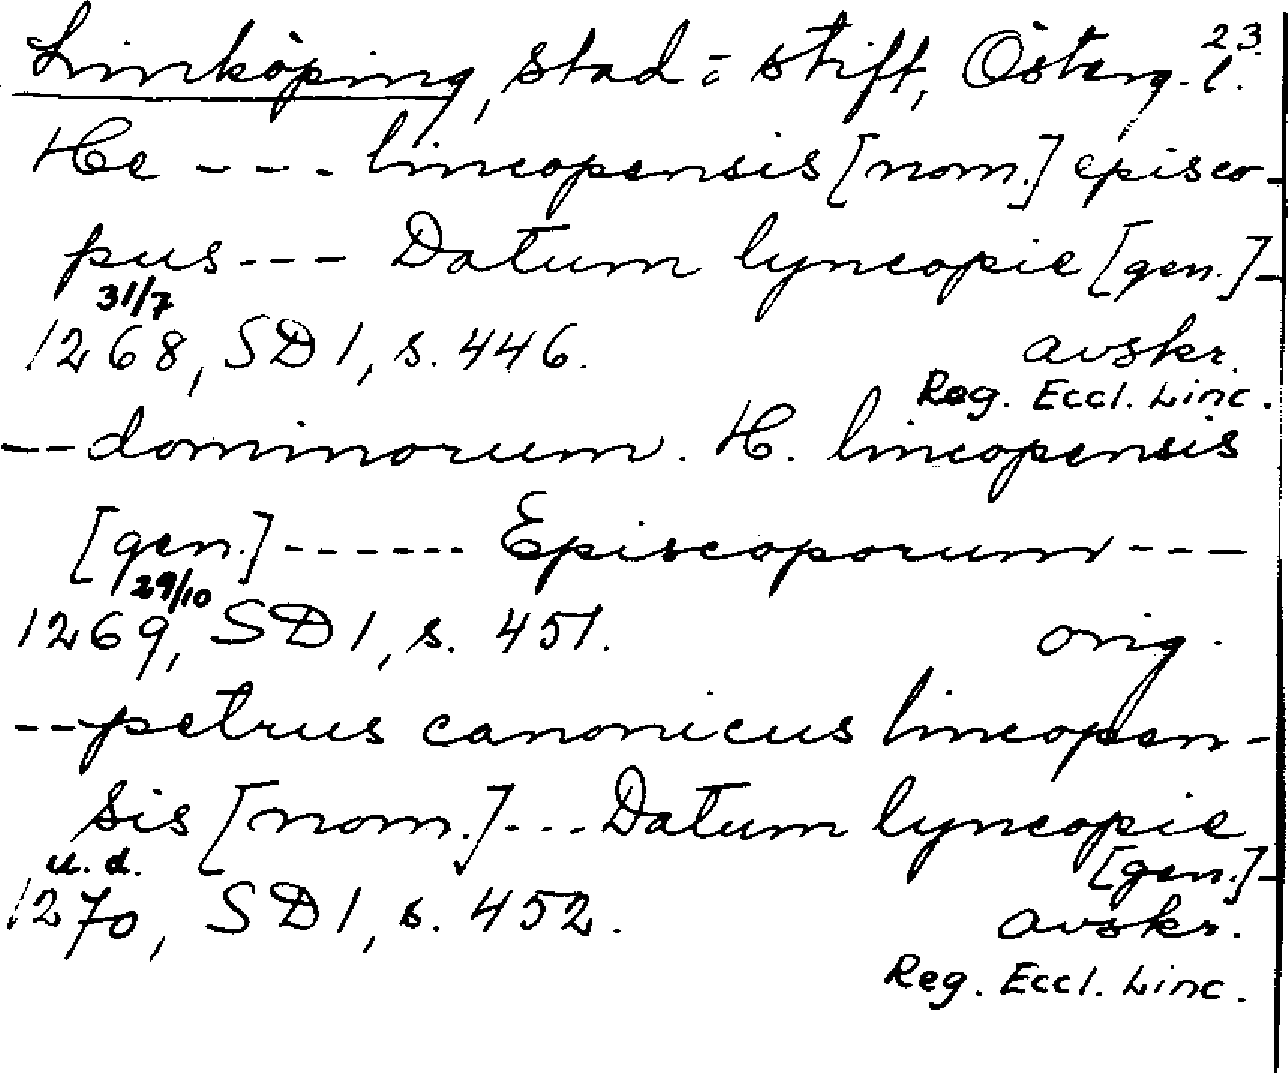 23.
Linköping, stad o. stift, Österg. l.
He --- lincopensis [nom.] episco-
pus --- Datum lyncopie [gen.] -
31/7
1268, SD 1, s. 446. avskr.
Reg. Eccl. Linc.
-- dominorum. H. lincopensis
[gen.] ------ Episcoporum ---
29/10
1269, SD 1, s. 451. orig.
-- petrus canonicus lincopen-
sis [nom.] --- Datum lyncopie
[gen.] -
u. d.
1270, SD 1, s. 452. avskr.
Reg. Eccl. Linc.